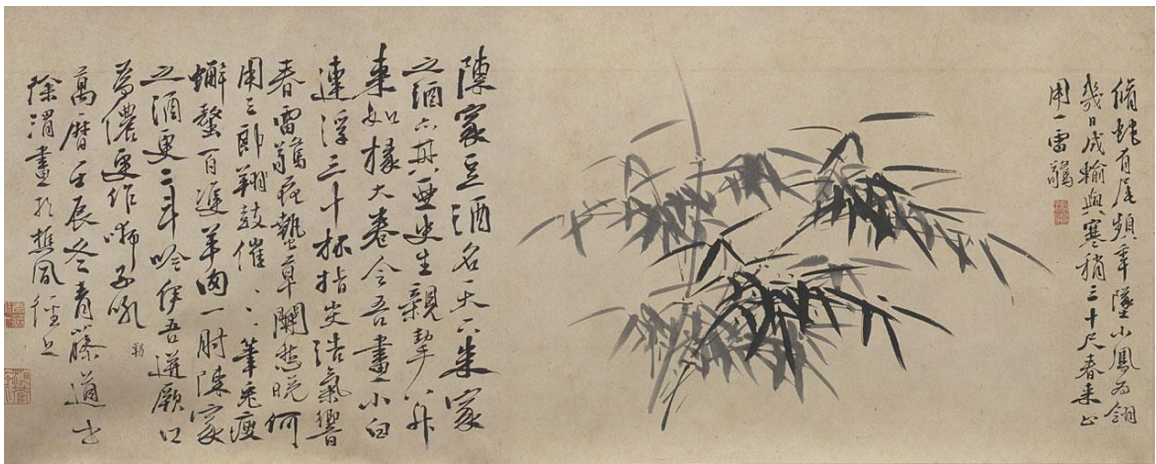 脩蛇有尾頻年墜小鳳為翎
幾日成輸與寒稍三十尺春来正
用一雷驚
陳家豆酒名天下朱家
之酒亦其亞史生親挈八升
来如椽大卷令吾畫小白
連浮三十杯指尖浩氣響
春雷驚花蟄草開愁晚何
用三郎羯鼓催、、、筆兔瘦
蟹螯百雙羊肉一肘陳家
之酒更二斗吟伊吾迸厥口
為儂更作獅子吼
萬曆壬辰冬青藤道士
徐渭畫於樵風徑上